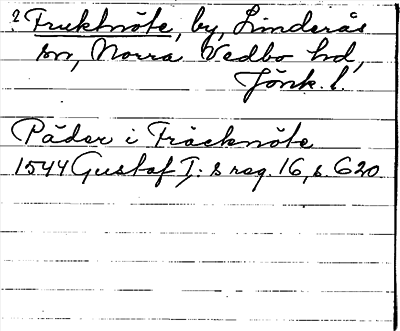 ? Fruktnöte, by, Linderås
sn, Norra Vedbo hd,
Jönk. l.
Päder i Fräcknöte
1544 Gustaf I:s reg. 16, s. 620